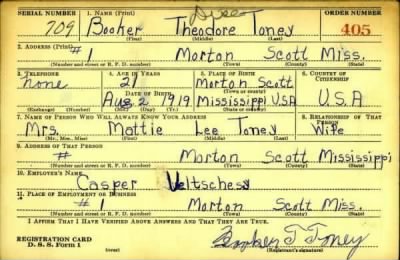 SERIAL NUMBER 1. NAME (Print) ORDER NUMBER
709 Booker Theodore Toney 405
(First) (Middle) (Last)
2. ADDRESS (Print)
# 1 Morton Scott Miss.
(Number and street or R. F. D. number) (Town) (County) (State)
3. TELEPHONE 4. AGE IN YEARS 5. PLACE OF BIRTH 6. COUNTRY OF CITIZENSHIP
none 21 Morton Scott
DATE OF BIRTH (Town or county)
Aug. 2 1919 Mississippi U.S.A U.S.A
(Exchange) (Number) (Mo.) (Day) (Yr.) (State or country)
7. NAME OF PERSON WHO WILL ALWAYS KNOW YOUR ADDRESS 8. RELATIONSHIP OF THAT PERSON
Mrs. Mattie Lee Toney Wife
(Mr., Mrs., Miss) (First) (Middle) (Last)
9. ADDRESS OF THAT PERSON
# Morton Scott Mississippi
(Number and street or R. F. D. number) (Town) (County) (State)
10. EMPLOYER'S NAME
Casper Weltschesy
11. PLACE OF EMPLOYMENT OR BUSINESS
# 1 Morton Scott Miss.
(Number and street or R. F. D. number) (Town) (County) (State)
I AFFIRM THAT I HAVE VERIFIED ABOVE ANSWERS AND THAT THEY ARE TRUE.
REGISTRATION CARD
D. S. S. FORM 1 Booker T Toney
(Registrant's signature)